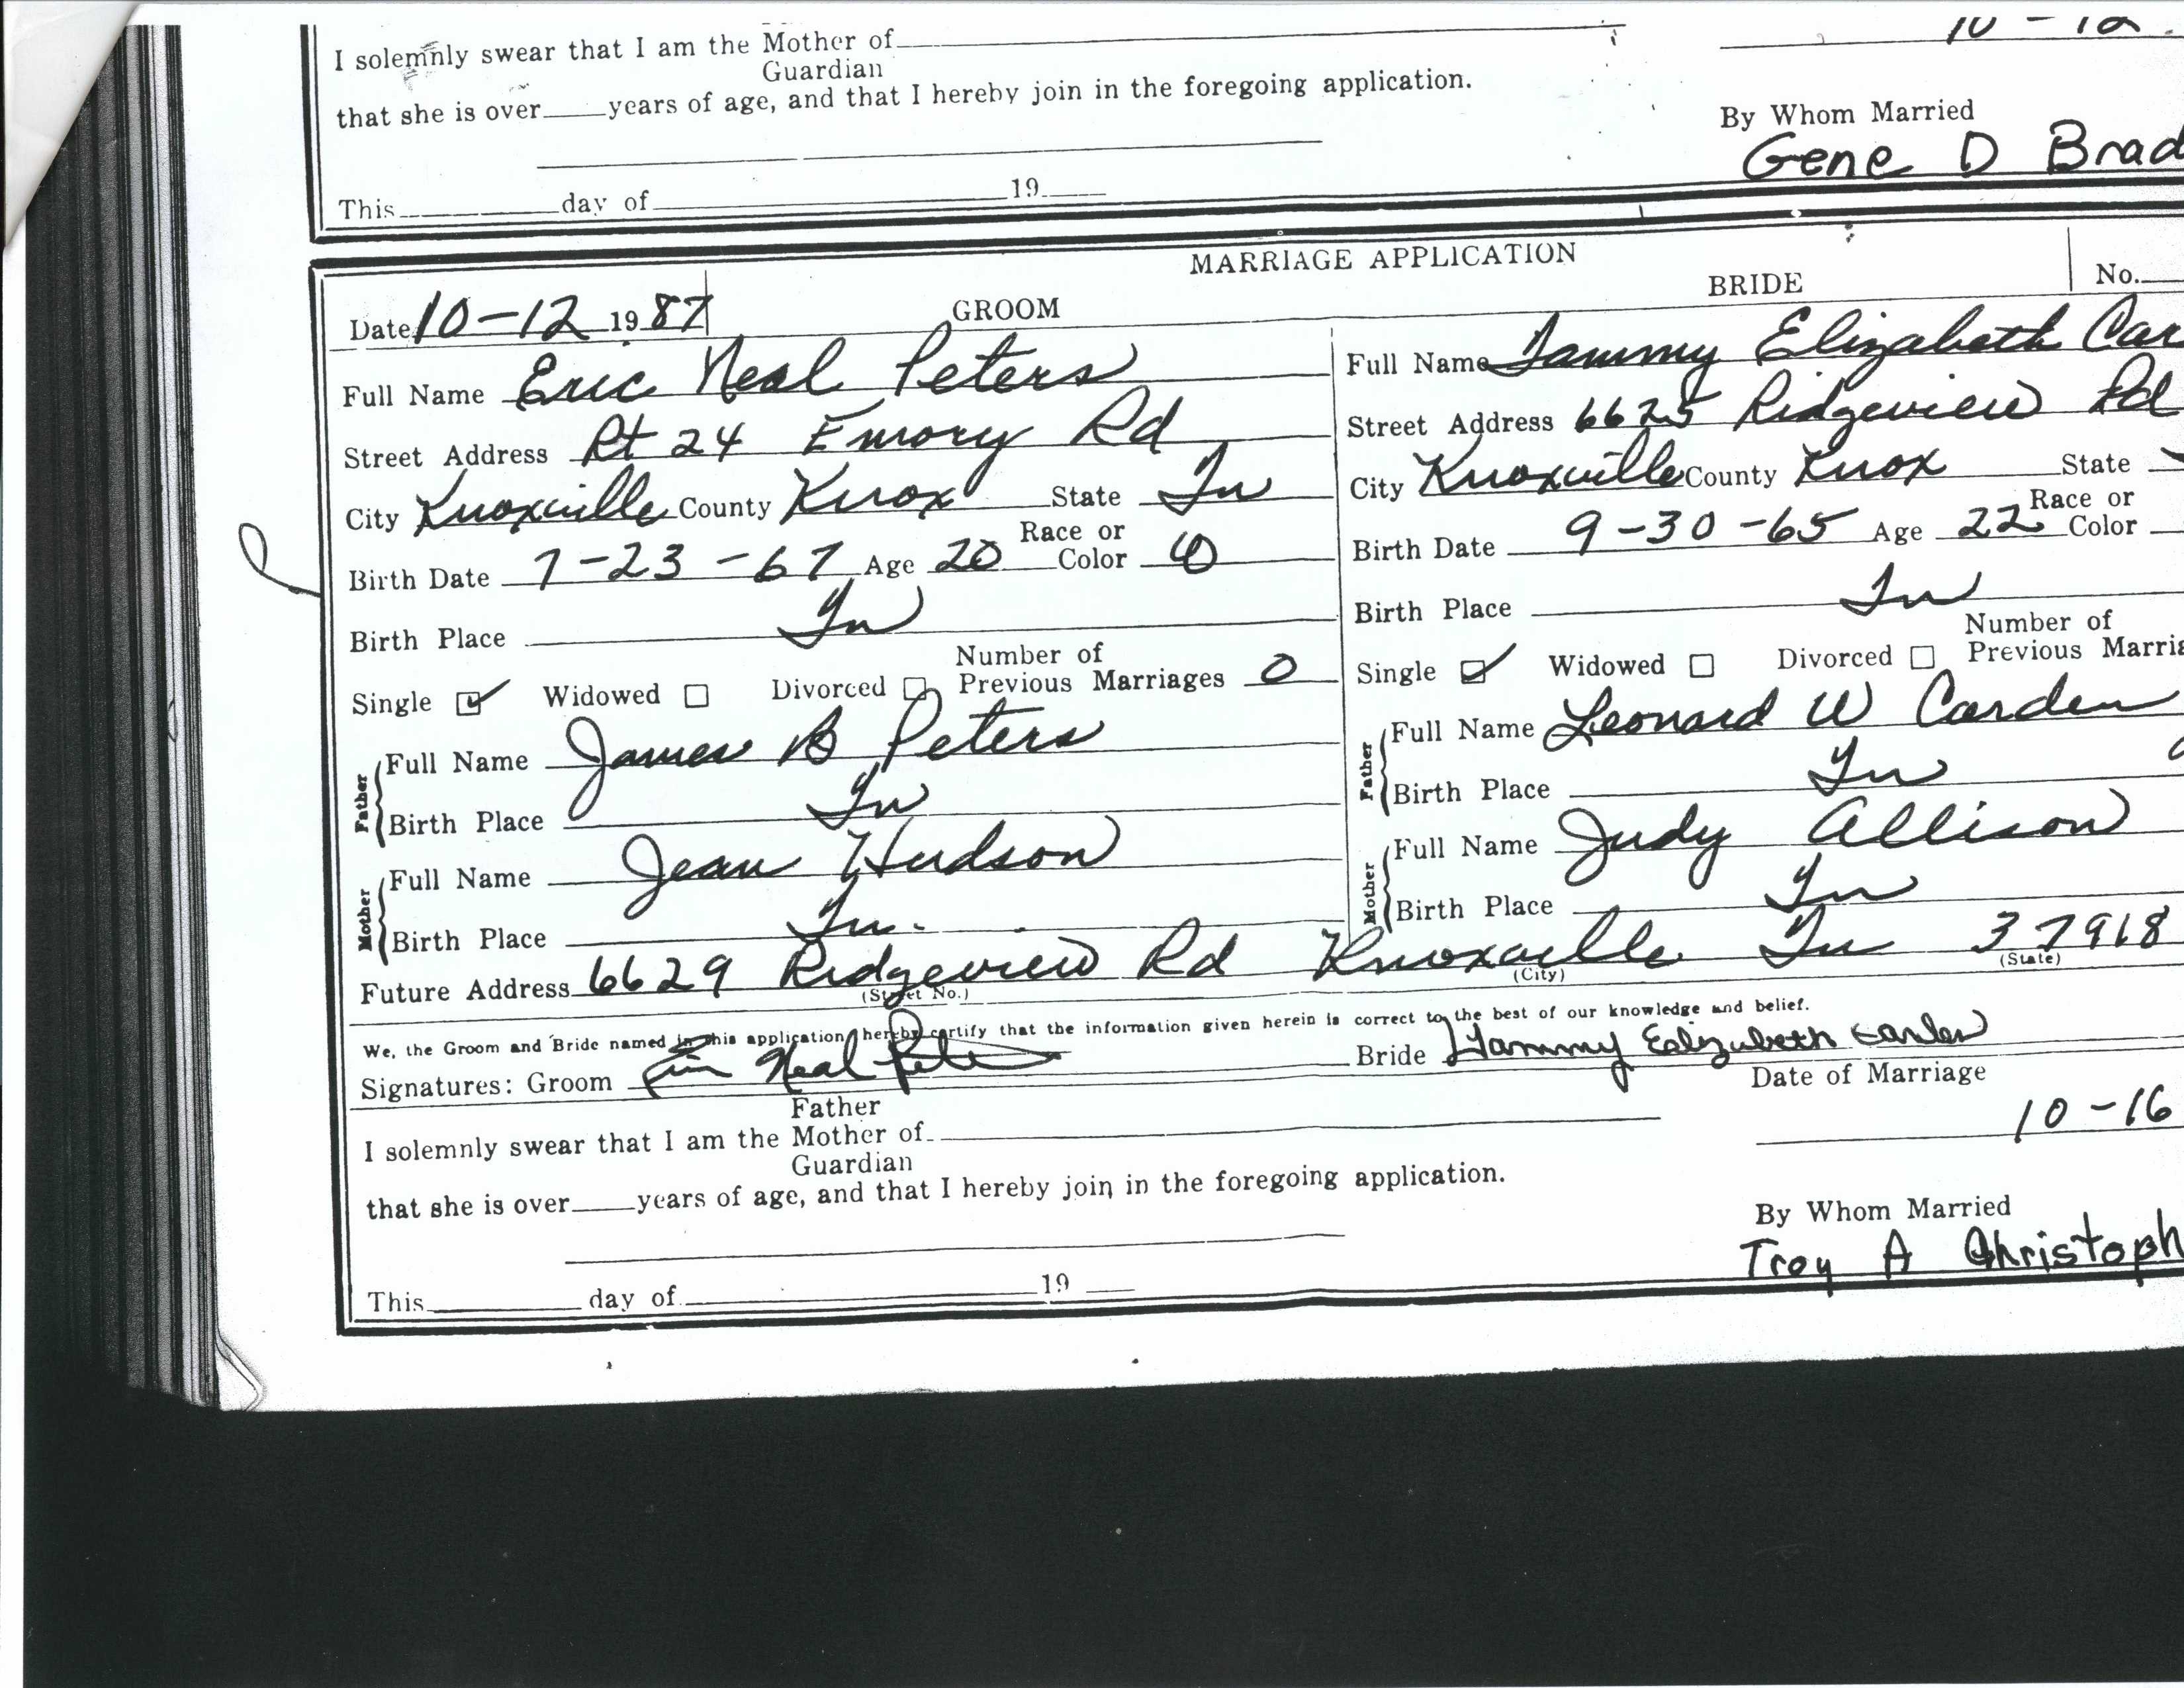 I solemnly swear that I am the Mother of
Guardian
that she is over years of age, and that I hereby join in the foregoing application.
By Whom Married
Gene D Brad
This day of 19
MARRIAGE APPLICATION
Date 10-12 1987 GROOM BRIDE No.
Full Name Eric Neal Peters
Street Address Rt 24 Emory Rd
City Knoxville County Knox State Tn
Birth Date 7-23-67 Age 20 Race or Color W
Birth Place Tn
Single ☑ Widowed ☐ Divorced ☐ Number of Previous Marriages 0
Father Full Name James B Peters
Birth Place Tn
Mother Full Name Jean Hudson
Birth Place Tn.
Full Name Tammy Elizabeth Car
Street Address 6625 Ridgeview Rd
City Knoxville County Knox State
Birth Date 9-30-65 Age 22 Race or Color
Birth Place Tn
Single ☑ Widowed ☐ Divorced ☐ Number of Previous Marria
Father Full Name Leonard W Carden
Birth Place Tn
Mother Full Name Judy Allison
Birth Place Tn
Future Address 6629 Ridgeview Rd Knoxville Tn 37918
(Street No.) (City) (State)
We, the Groom and Bride named in this application hereby certify that the information given herein is correct to the best of our knowledge and belief.
Signatures: Groom Eric Neal Pete Bride Tammy Elizabeth Carden
Date of Marriage
10-16
Father
I solemnly swear that I am the Mother of
Guardian
that she is over years of age, and that I hereby join in the foregoing application.
By Whom Married
Troy A Christoph
This day of 19